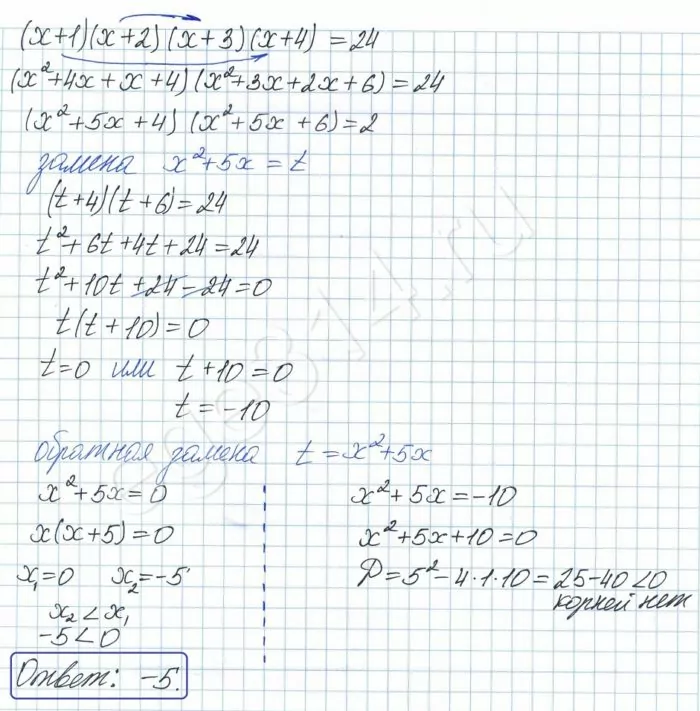 (x+1)(x+2)(x+3)(x+4) = 24
(x²+4x+x+4)(x²+3x+2x+6) = 24
(x²+5x+4)(x²+5x+6)=2
замена x²+5x = t
(t+4)(t+6)=24
t²+6t+4t+24=24
t²+10t+24-24=0
t(t+10)=0
t=0 или t+10=0
t=-10
обратная замена t=x²+5x
x²+5x=0
x(x+5)=0
x₁=0 x₂=-5
x₂<x₁
-5<0
x²+5x=-10
x²+5x+10=0
D=5²-4·1·10=25-40<0
корней нет
Ответ: -5.